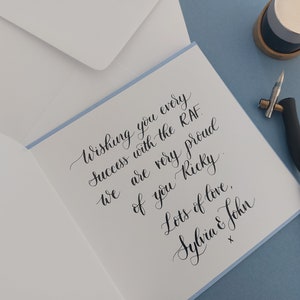 Wishing you every
success with the RAF
we are very proud
of you Ricky
Lots of love,
Sylvia & John
x